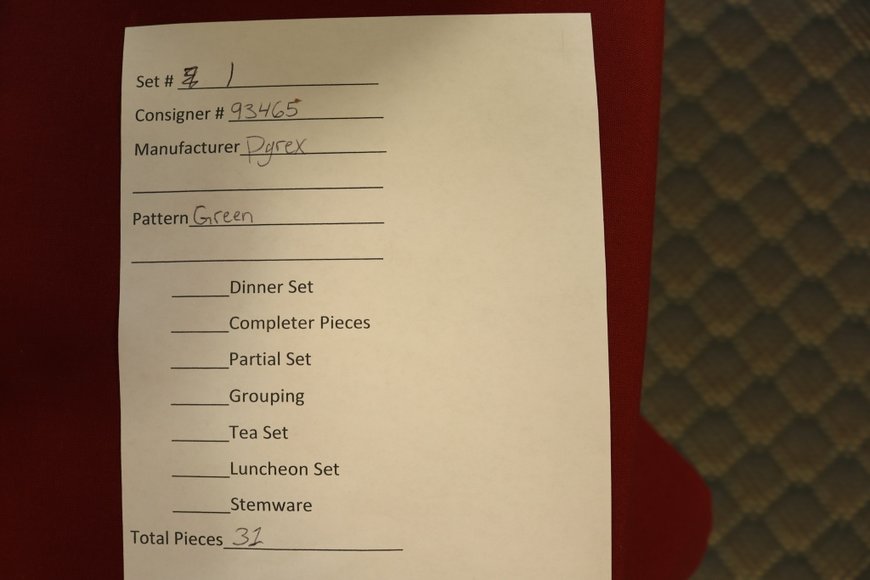 Set # 1
Consigner # 93465
Manufacturer Pyrex
Pattern Green
Dinner Set
Completer Pieces
Partial Set
Grouping
Tea Set
Luncheon Set
Stemware
Total Pieces 31